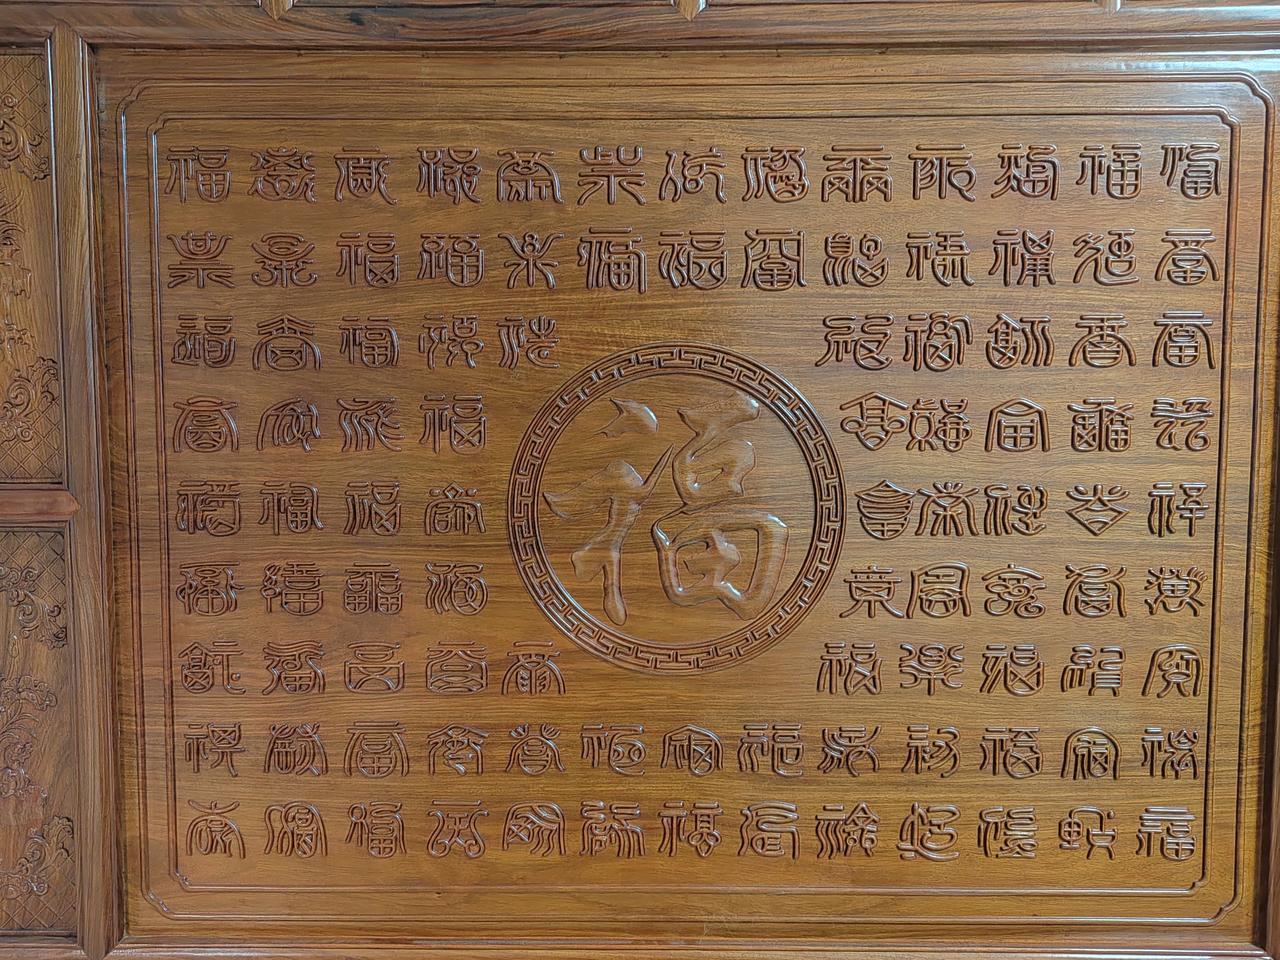 福福福福福福福福福福福福福
福福福福福福福福福福福福福
福福福福福福福福福福
福福福福福福福福福
福
福福福福福福福福福
福福福福福福福福福
福福福福福福福福福福
福福福福福福福福福福福福福
福福福福福福福福福福福福福